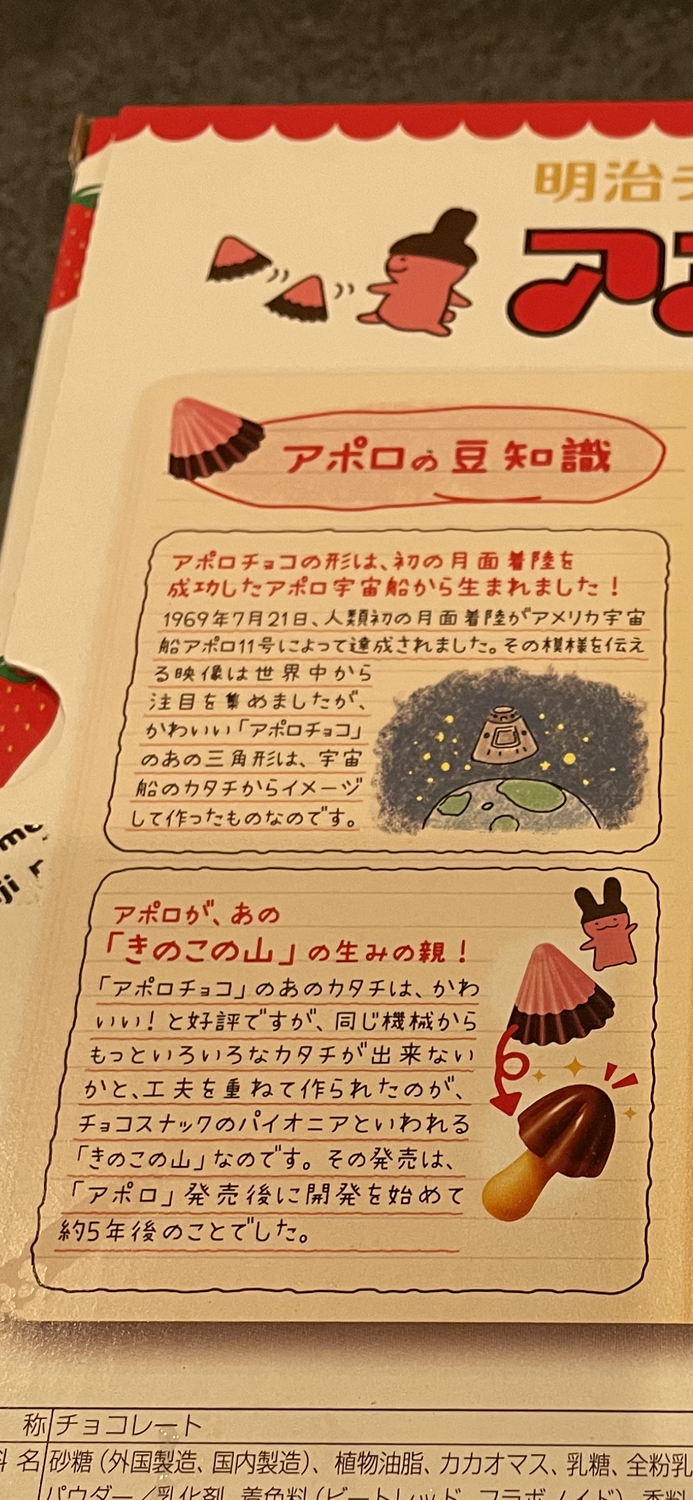 明治
アポロの豆知識
アポロチョコの形は、初の月面着陸を
成功したアポロ宇宙船から生まれました！
1969年7月21日、人類初の月面着陸がアメリカ宇宙
船アポロ11号によって達成されました。その模様を伝え
る映像は世界中から
注目を集めましたが、
かわいい「アポロチョコ」
のあの三角形は、宇宙
船のカタチからイメージ
して作ったものなのです。
アポロが、あの
「きのこの山」の生みの親！
「アポロチョコ」のあのカタチは、かわ
いい！と好評ですが、同じ機械から
もっといろいろなカタチが出来ない
かと、工夫を重ねて作られたのが、
チョコスナックのパイオニアといわれる
「きのこの山」なのです。その発売は、
「アポロ」発売後に開発を始めて
約5年後のことでした。
称 チョコレート
名 砂糖（外国製造、国内製造）、植物油脂、カカオマス、乳糖、全粉乳
パウダー／乳化剤、着色料（ビートレッド、フラボノイド）、香料